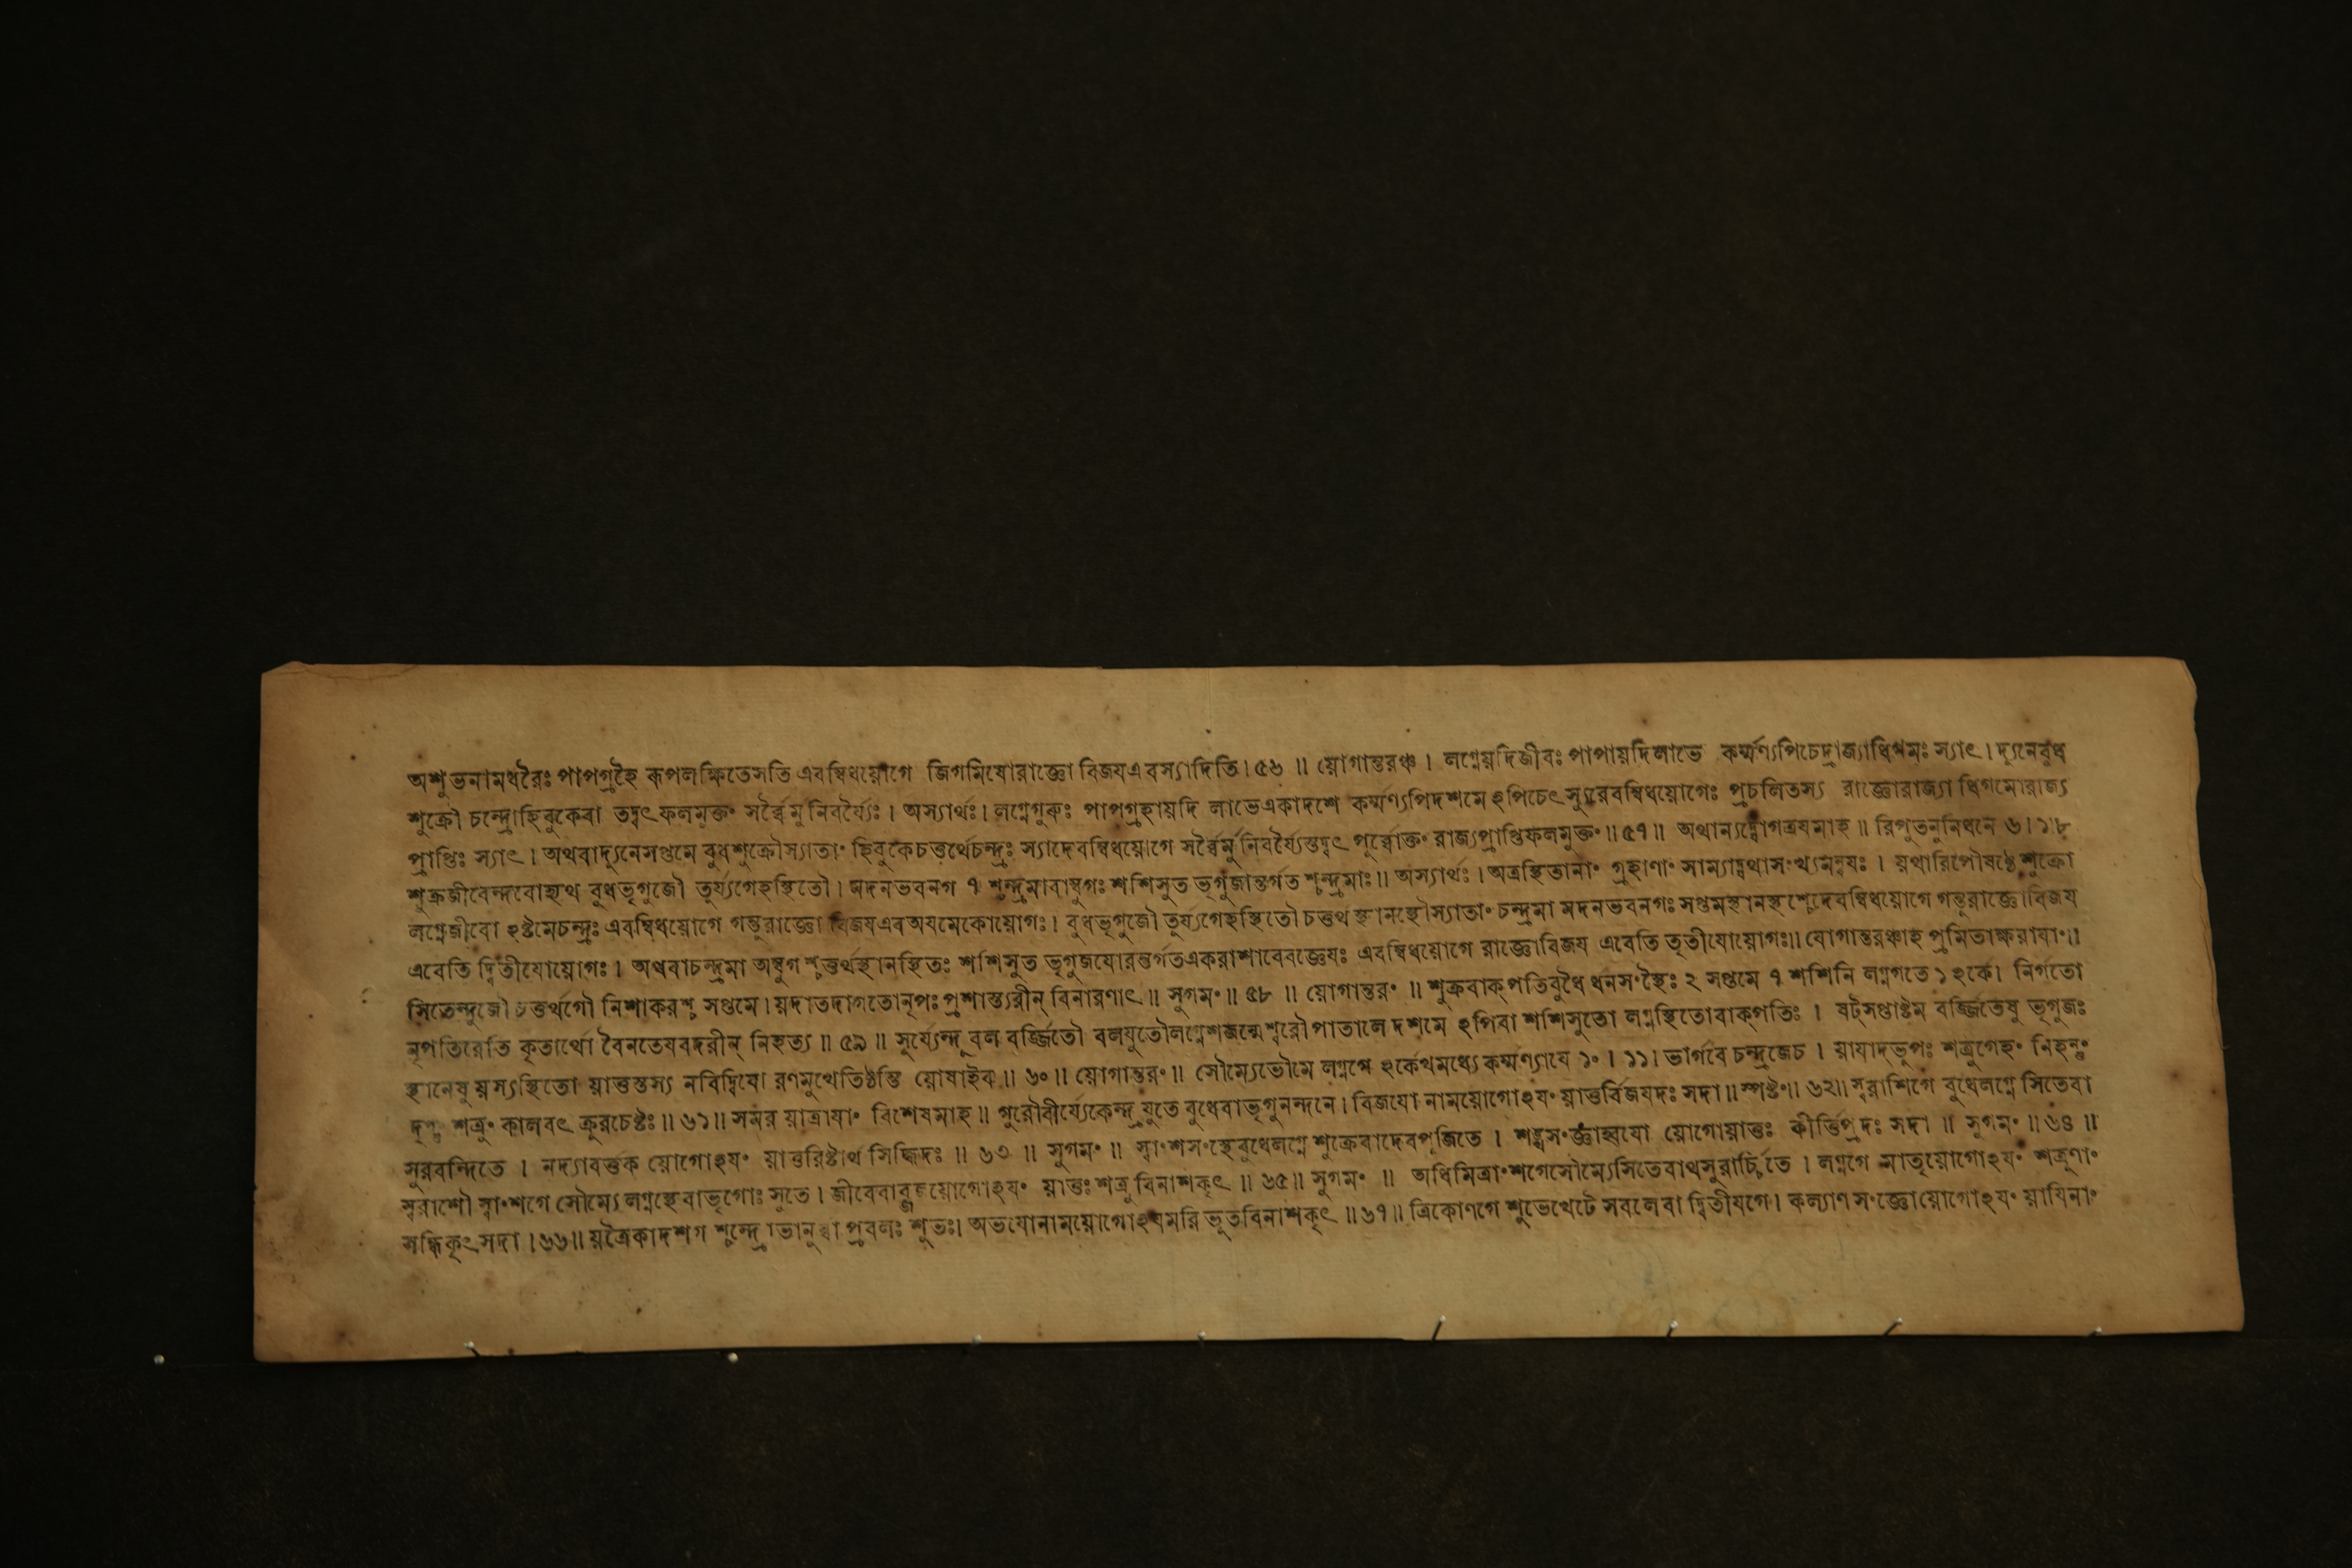 অশুভনামধরৈঃ পাপগ্রহৈ ৰুপলক্ষিতেসতি এবম্বিধয়োগে জিগমিষোরাজ্ঞো বিজযএবস্যাদিতি । ৫৬ ॥ য়োগান্তরঞ্চ । লগ্নেয়দিজীবঃ পাপায়দিলাভে কর্ম্মণ্যপিচেদ্রাজ্যাধিগমঃ স্যাৎ । দ্যূনেবুধ
শুক্রৌ চন্দ্রোহিবুকেবা তদ্বৎফলমুক্তং সর্ব্বৈর্মুনিবর্য্যৈঃ । অস্যার্থঃ । লগ্নেগুরুঃ পাপগ্রহায়দি লাভেএকাদশে কর্ম্মণ্যপিদশমে ঽপিচেৎস্যুরেবম্বিধয়োগেঃ প্রচলিতস্য রাজ্ঞোরাজ্যাধিগমোরাজ্য
প্রাপ্তিঃ স্যাৎ । অথবাদ্যুনেসপ্তমে বুধশুক্রৌস্যাতাং হিবুকেচতুর্থেচন্দ্রঃ স্যাদেবম্বিধয়োগে সর্ব্বৈর্মুনিবর্য্যৈস্তদ্বৎ পূর্ব্বোক্তং রাজ্যপ্রাপ্তিফলমুক্তং ॥ ৫৭ ॥ অথান্যদ্যোগত্রযমাহ ॥ রিপুতনুনিধনে ৬ । ১ । ৮
শুক্রজীবেন্দবোহ্যথ বুধভৃগুজৌ তুর্য্যগেহস্থিতৌ । মদনভবনগ ৭ শ্চন্দ্রমাবাম্বুগঃ শশিসুত ভৃগুজান্তর্গত শ্চন্দ্রমাঃ ॥ অস্যার্থঃ । অত্রস্থিতানাং গ্রহাণাং সাম্যাদ্যথাসংখ্যমন্বযঃ । যথারিপৌষষ্ঠেশুক্রো
লগ্নেজীবো ঽষ্টমেচন্দ্রঃ এবম্বিধয়োগে গন্তুরাজ্ঞো বিজযএব অযমেকোয়োগঃ । বুধভৃগুজৌ তুর্য্যগেহস্থিতৌ চতুর্থ স্থানস্থৌস্যাতাং চন্দ্রমা মদনভবনগঃ সপ্তমস্থানস্থশ্চেদেবম্বিধয়োগে গন্তুরাজ্ঞোবিজয
এবেতি দ্বিতীযোয়োগঃ । অথবাচন্দ্রমা অম্বুগ শ্চতুর্থস্থানস্থিতঃ শশিসুত ভৃগুজযোরন্তর্গতএকরাশাবেবজ্ঞেযঃ এবম্বিধয়োগে রাজ্ঞোবিজয এবেতি তৃতীযোয়োগঃ ॥ যোগান্তরঞ্চাহ প্রমিতাক্ষরাযাং ॥
সিতেন্দুজৌ চতুর্থগৌ নিশাকরশ্চ সপ্তমে । য়দাতদাগতোনৃপঃ প্রশাস্ত্যরীন্ বিনারণাৎ ॥ সুগমং ॥ ৫৮ ॥ য়োগান্তরং ॥ শুক্রবাক্পতিবুধৈ র্ধনসংস্থৈঃ ২ সপ্তমে ৭ শশিনি লগ্নগতে ১ ঽর্কে । নির্গতো
নৃপতিরেতি কৃতার্থো বৈনতেযবদরীন্ নিহত্য ॥ ৫৯ ॥ সূর্য্যেন্দূ বল বর্জ্জিতৌ বলযুতৌলগ্নেশজন্মেশ্বরৌ পাতালে দশমে ঽপিবা শশিসুতো লগ্নস্থিতোবাক্পতিঃ । ষট্সপ্তাষ্টম বর্জ্জিতেষু ভৃগুজঃ
স্থানেষু য়স্যস্থিতো য়াতুস্তস্য নবিদ্বিষো রণমুখেতিষ্ঠন্তি য়োষাইব ॥ ৬০ ॥ য়োগান্তরং ॥ সৌম্যেভৌমে লগ্নগে ঽর্কেখমধ্যে কর্ম্মণ্যাযে ১০ । ১১ । ভার্গবে চন্দ্রজেচ । য়াযাদ্ভূপঃ শত্রুগেহং নিহন্তুং
শত্রুং কালবৎ ক্রূরচেষ্টঃ ॥ ৬১ ॥ সমর য়াত্রাযাং বিশেষমাহ ॥ গুরৌবীর্য্যেকেন্দ্রযুতে বুধেবাভৃগুনন্দনে । বিজযো নাময়োগোঽযং য়াতুর্বিজযদঃ সদা ॥ স্পষ্টং ॥ ৬২ ॥ স্বরাশিগে বুধেলগ্নে সিতেবা
সুরবন্দিতে । নদ্যাবর্ত্তক য়োগোঽযং য়াতুরিষ্টার্থ সিদ্ধিদঃ ॥ ৬৩ ॥ সুগমং ॥ স্বাংশসংস্থেবুধেলগ্নে শুক্রেবাদেবপূজিতে । শঙ্খসংজ্ঞাহ্বযো য়োগোয়াতুঃ কীর্ত্তিপ্রদঃ সদা ॥ সুগমং ॥ ৬৪ ॥
স্বরাশৌ স্বাংশগে সৌম্যে লগ্নস্থেবাভৃগোঃ সুতে । জীবেবা য়োগোঽযং য়াতুঃ শত্রু বিনাশকৃৎ ॥ ৬৫ ॥ সুগমং ॥ অধিমিত্রাংশগেসৌম্যেসিতেবাথসুরার্চ্চিতে । লগ্নগে মাতৃয়োগোঽযং শত্রূণাং
সন্ধিকৃৎসদা । ৬৬ ॥ য়ত্রৈকাদশগ শ্চন্দ্রোভানুর্বা প্রবলঃ শুভঃ । অভযোনাময়োগোঽযমরি ভূতবিনাশকৃৎ ॥ ৬৭ ॥ ত্রিকোণগে শুভেখেটে সবলেবা দ্বিতীযগে । কল্যাণ সংজ্ঞোয়োগোঽযং য়াযিনাং